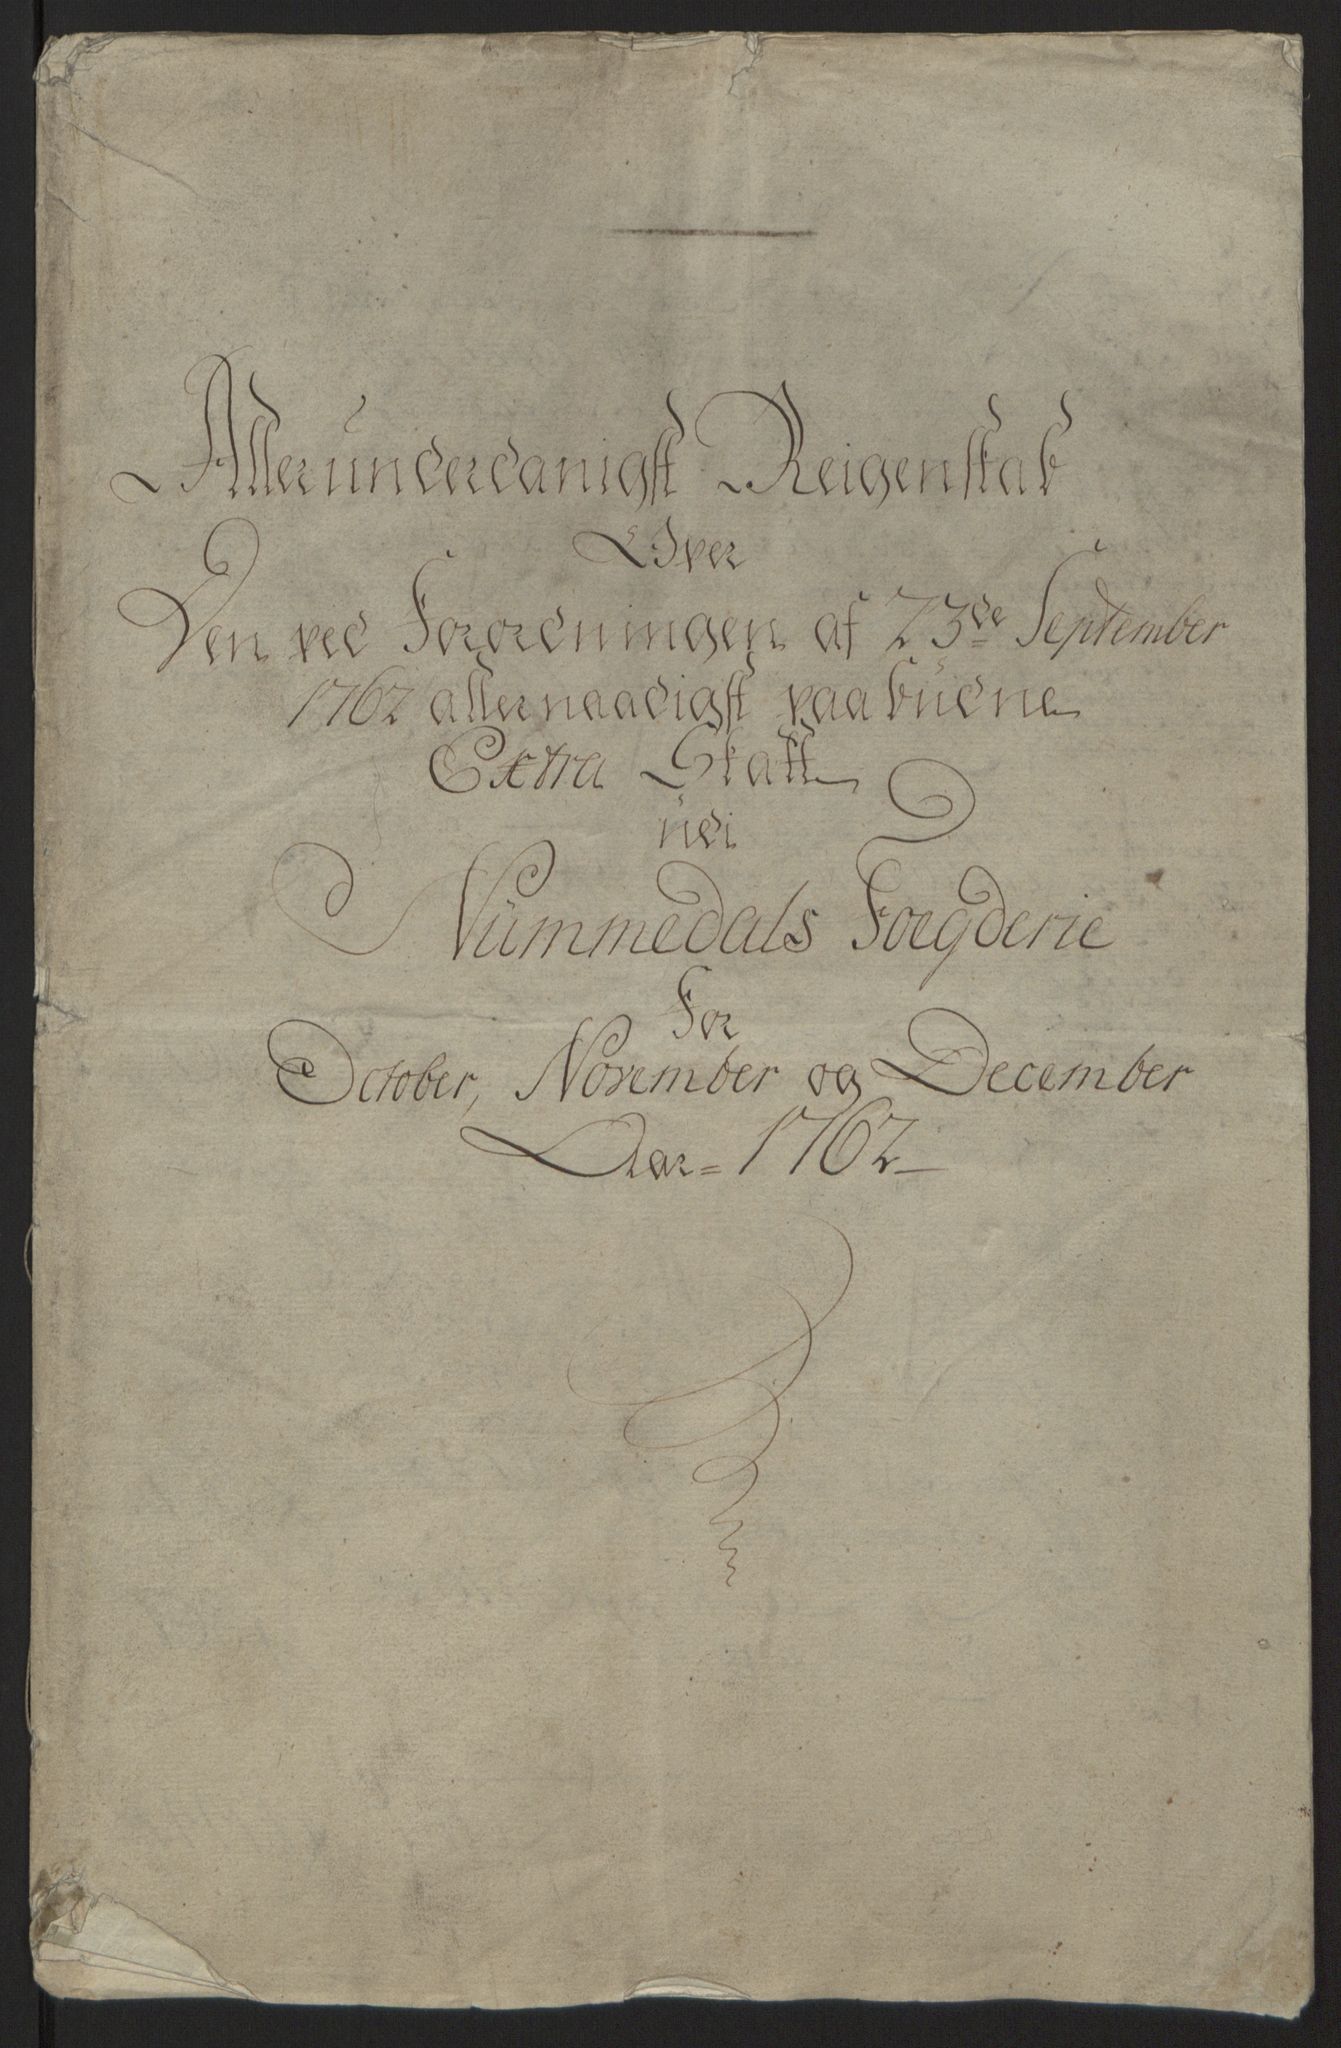 Allerunderdanigst Reigenskab
Over
Den ved Forordningen af 23de September
1762 allernaadigst paabüdne
Extra Skatt
üdi
Nümmedals Foegderie
For
October, November og December
Aar = 1762